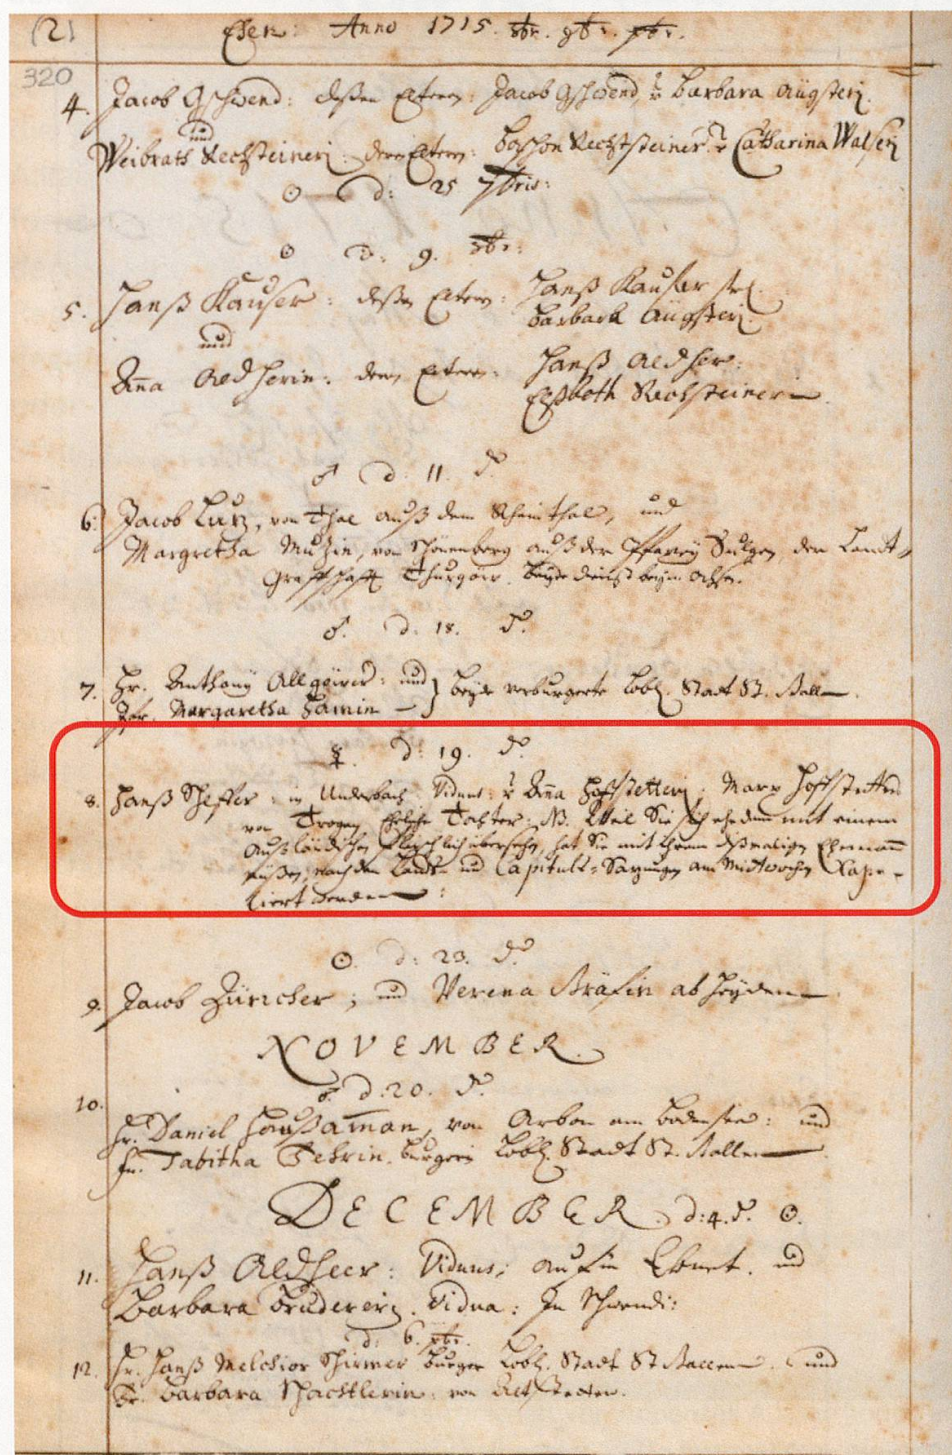 (2)
Ehen: Anno 1715. 8br. 9br. xbr.
320
4. Jacob Gschwend: deßen Eltern: Jacob Gschwend, Barbara Augsterj.
und
Weibrath Rechsteinerj: deren Eltern: Rechsteiner Catharina Walserj
☉ d: 25 7bris:
☉ d: 9. 8br:
5. Hanß Kauser: deßen Eltern: Hanß Kauser sel.
Barbara Augsterj.
und
Anna Aedherin: deren Eltern: Hanß Aedher:
Elßbeth Rechsteinerin.
♂ d: 11. d°.
6. Jacob Lutz, von Thal auß dem Rheinthal, und
Margretha Mutzin, von Schönenberg auß der Pfarrej Sulgen, der Landt-
Graffschafft Thurgöw. beyde dienst beym Ochsen.
♂. d: 18. d°.
7. Hr. Anthonÿ Allgöwer: und beyde verburgerte Lobl. Stadt St. Gallen.
Jfr. Margaretha
☿. d: 19. d°.
8. Hanß Scheffer: in Underbach Viduus: Anna Hoffstetterj: Marx Hoffstetters
von Trogen Eheliche Tochter: NB. Weil Sie sich ehedem mit einem
Außländischen fleischlich übersehen, hat Sie mit ihrem dißmaligen Ehemann
müßen, nach den Landts und Capituls-Satzungen am Mittwochen Copu-
liert werden:
☉. d: 23. d°.
9. Jacob Züricher; und Verena Gräfin ab Heyden
NOVEMBER.
♂ d: 20. d°.
10.
Hr. Daniel Haußaman, von Arbon am Bodensee: und
Fr. Tabitha Fehrin. burgerj Lobl. Stadt St. Gallen
DECEMBER. d: 4. d°. ☉.
11. Hanß Aedheer: Viduus; auf im Ebnet. und
Barbara Brudererj. Vidua: In Schwendi:
d: 6. xbr.
12. Hr. Hanß Melchior Schirmer burger Lobl. Stadt St Gallen. und
Fr. Barbara Schachtlerin: von Altstetten.